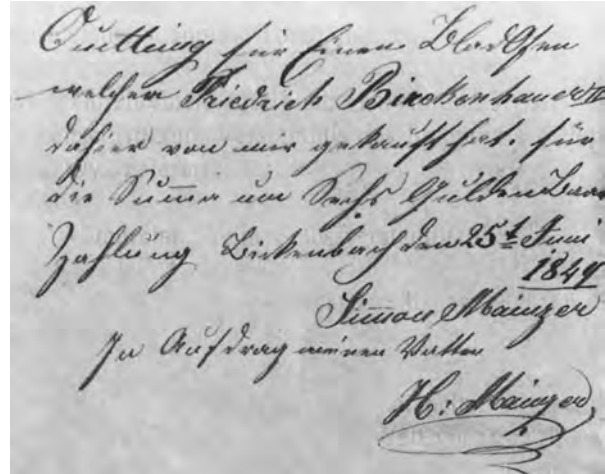 Quittung für Einen Bladofen
welcher Friedrich Birckenhauer II
dahier von mir gekauft hat. für
die Summa um Sechs Gulden Baar
Zahlung Bickenbach den 25t Juni
1849
Simon Mainzer
In Aufdrag meinen Vatter
H: Mainzer